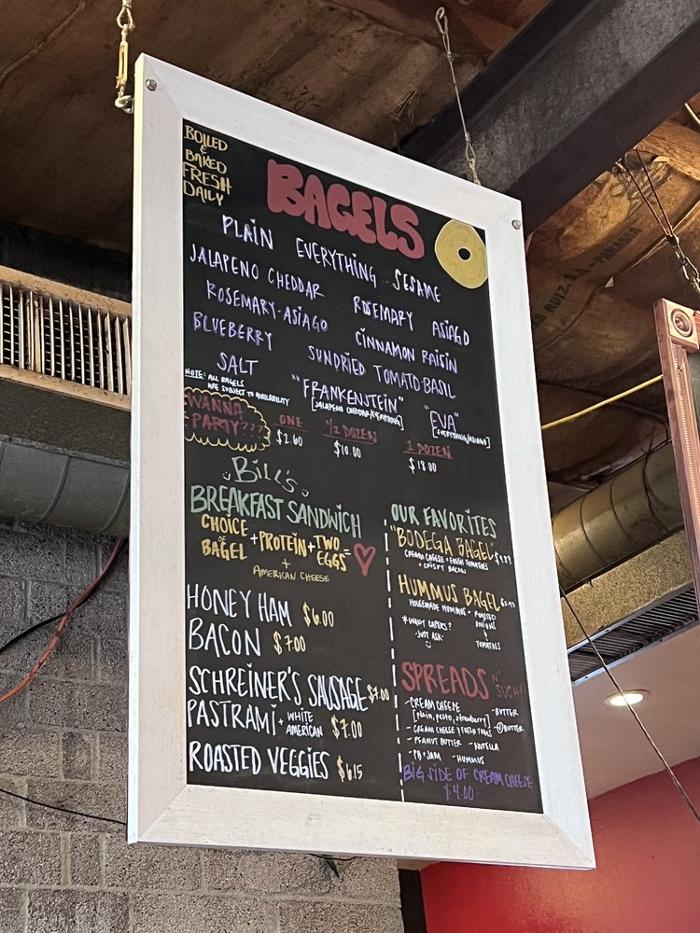 BOILED
&
BAKED
FRESH
DAILY
BAGELS
PLAIN EVERYTHING SESAME
JALAPENO CHEDDAR ROSEMARY ASIAGO
ROSEMARY-ASIAGO CINNAMON RAISIN
BLUEBERRY SUNDRIED TOMATO-BASIL
SALT "FRANKENSTEIN" "EVA"
[JALAPENO CHEDDAR/EVERYTHING] [EVERYTHING/ASIAGO]
NOTE: ALL BAGELS
ARE SUBJECT TO AVAILABILITY
WANNA
PARTY???
ONE 1/2 DOZEN 1 DOZEN
$2.60 $10.00 $18.00
Bill's
BREAKFAST SANDWICH
CHOICE
OF
BAGEL + PROTEIN + TWO EGGS =
+
AMERICAN CHEESE
HONEY HAM $6.00
BACON $7.00
SCHREINER'S SAUSAGE $7.00
PASTRAMI + WHITE AMERICAN $7.00
ROASTED VEGGIES $6.15
OUR FAVORITES
"BODEGA BAGEL"
CREAM CHEESE + FRESH TOMATOES
+ CRISPY BACON
HUMMUS BAGEL
HOMEMADE HUMMUS + ROASTED
ONIONS
&
TOMATOES
*WANT CAPERS?
JUST ASK
SPREADS N' SUCH
-CREAM CHEESE -BUTTER
[plain, pesto, strawberry]
-CREAM CHEESE + FRESH TOMS
-PEANUT BUTTER -NUTELLA
-PB+JAM -HUMMUS
BIG SIDE OF CREAM CHEESE
$4.00
RUIZ, S.A. - PANAMA